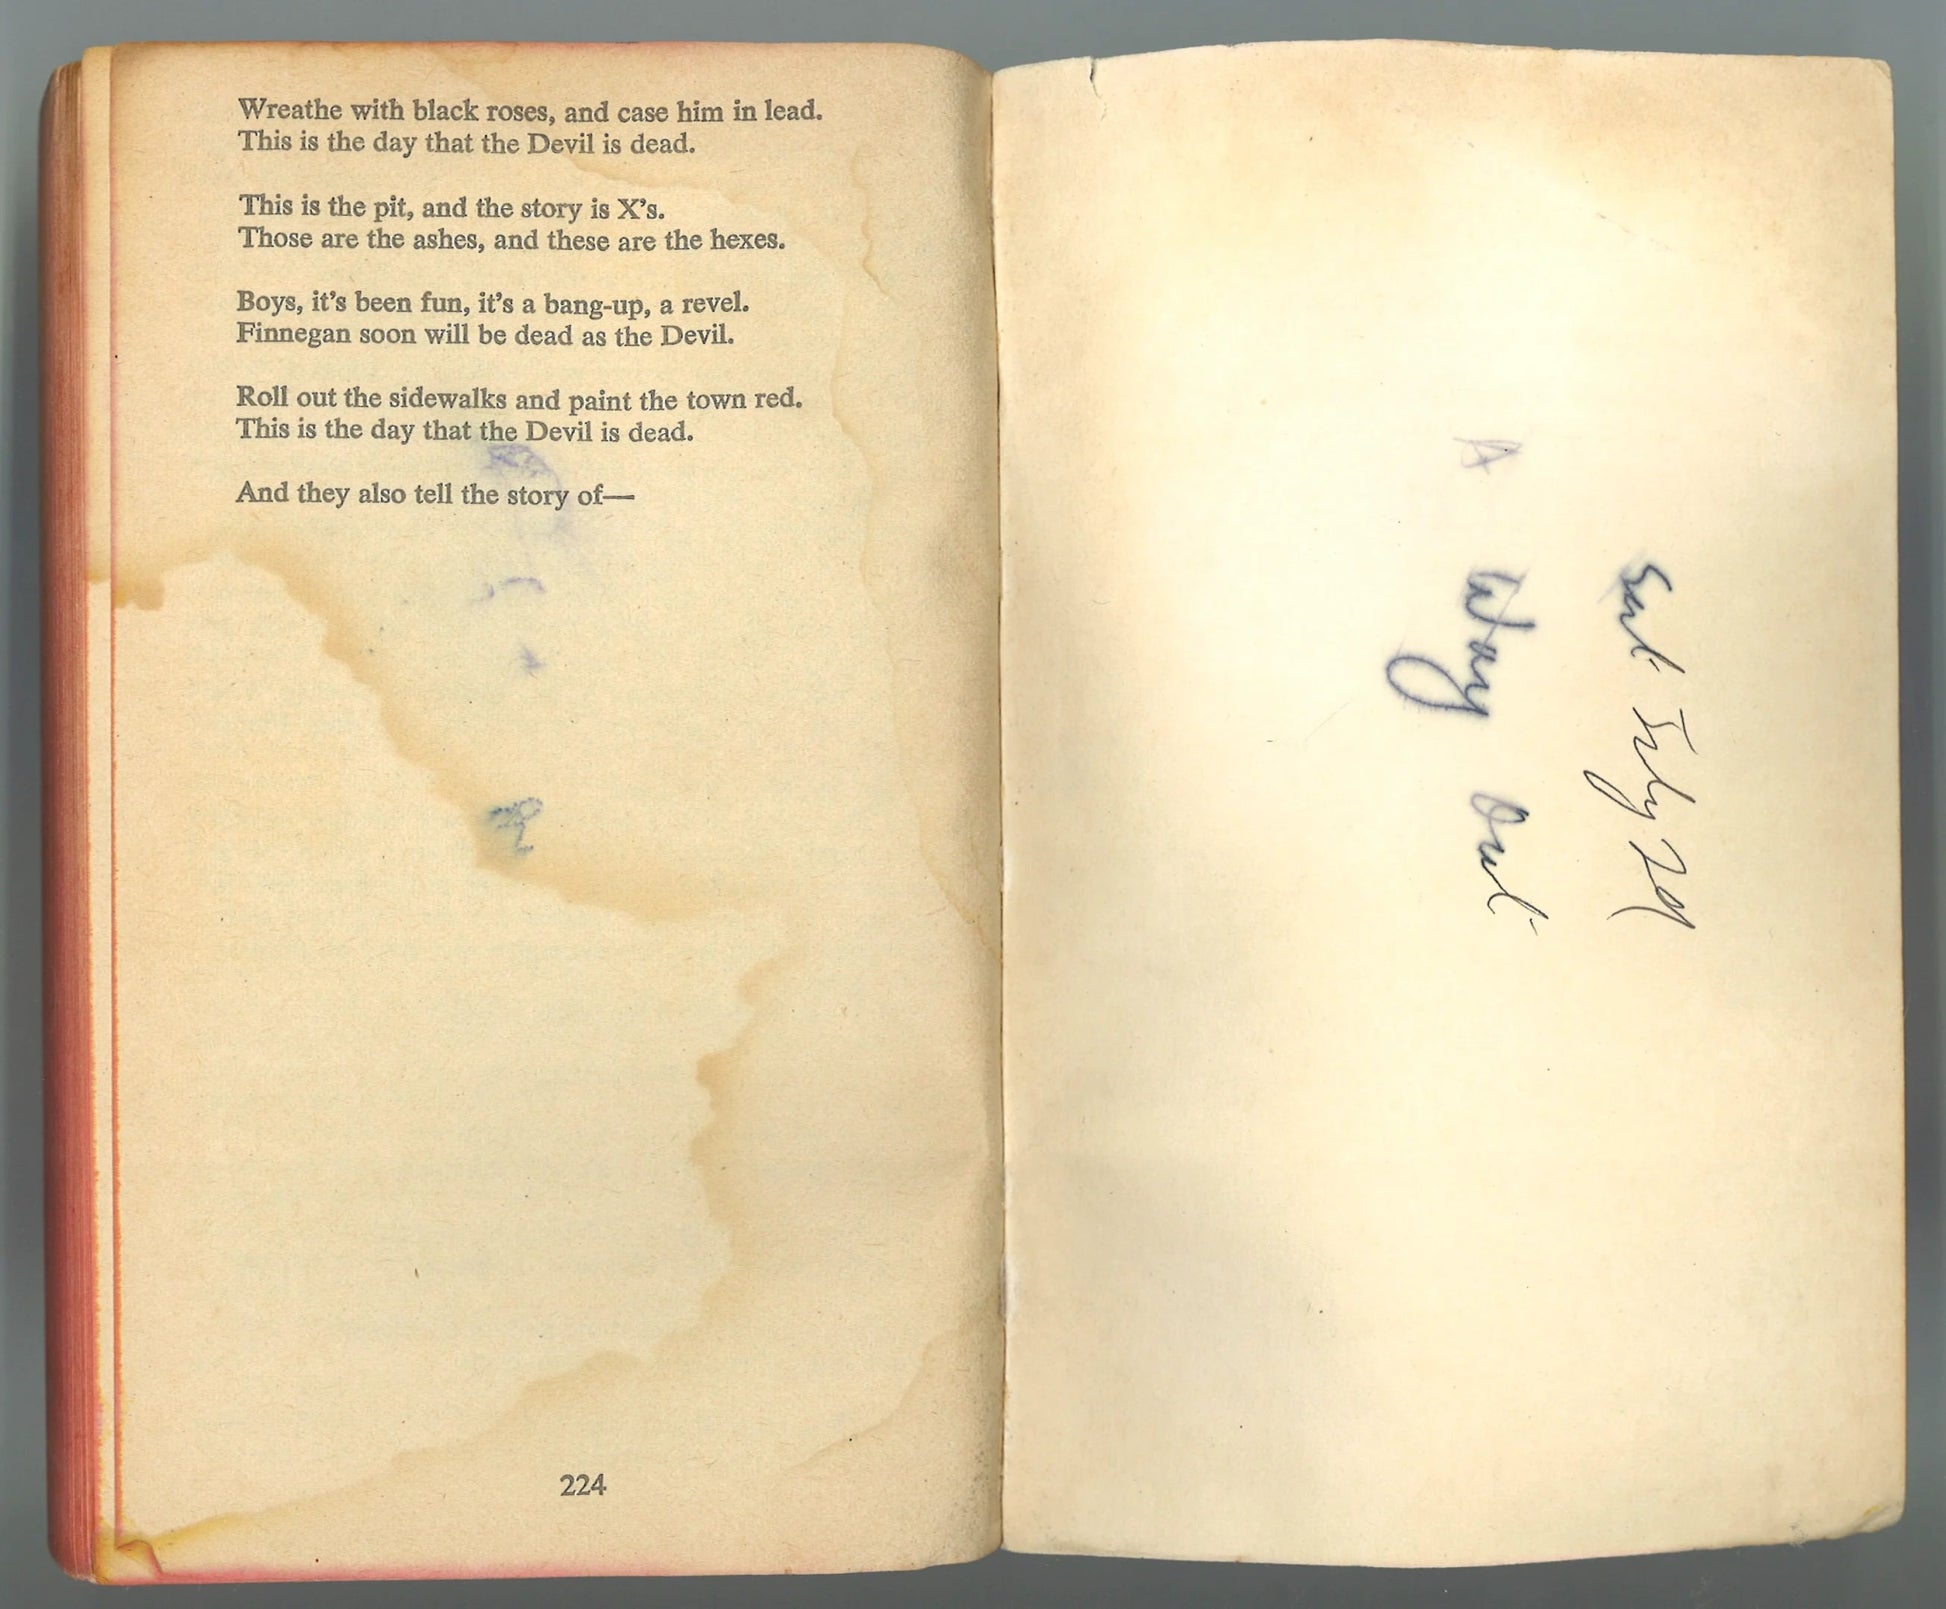 Wreathe with black roses, and case him in lead.
This is the day that the Devil is dead.
This is the pit, and the story is X's.
Those are the ashes, and these are the hexes.
Boys, it's been fun, it's a bang-up, a revel.
Finnegan soon will be dead as the Devil.
Roll out the sidewalks and paint the town red.
This is the day that the Devil is dead.
And they also tell the story of—
224
Sent July 29
A Way Out